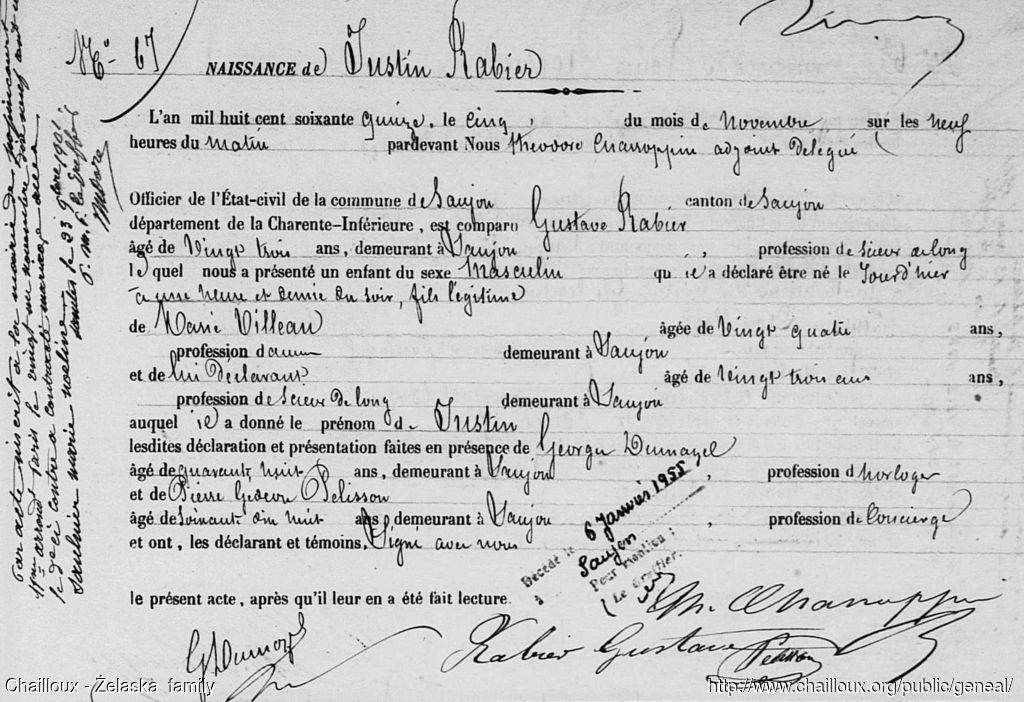 No 67
NAISSANCE de Justin Rabier
L'an mil huit cent soixante quinze, le cinq, du mois de Novembre sur les neuf
heures du matin pardevant Nous Théodore Charroppin adjoint Délégué
Officier de l'État-civil de la commune de Saujon canton de Saujon
département de la Charente-Inférieure, est comparu Gustave Rabier
âgé de vingt trois ans, demeurant à Saujon profession de scieur de long
le quel nous a présenté un enfant du sexe Masculin qu'il a déclaré être né le Jourd'hier
à une heure et demie du soir, fils légitime
de Marie Villeau âgée de vingt quatre ans,
profession d aucune demeurant à Saujon
et de lui Déclarant âgé de vingt trois ans ans,
profession de scieur de long demeurant à Saujon
auquel il a donné le prénom de Justin
lesdites déclaration et présentation faites en présence de Georges
âgé de quarante huit ans, demeurant à Saujon, profession d horloger
et de Pierre Gédéon Pelisson
âgé de soixante dix huit ans, demeurant à Saujon, profession de Concierge
et ont, les déclarant et témoins, Signé avec nous
le présent acte, après qu'il leur en a été fait lecture.
Décédé le 6 Janvier 1955
à Saujon
Pour mention:
Le Greffier.
Th. Charroppin
Rabier Gustave
Pelisson
Par acte inscrit à la mairie du
11me arrond Paris le vingt un novembre dix neuf cent un
le né ci contre a contracté mariage avec
Saulnier marie noeline
Saintes le 23 9bre 1901
P. m. f. le Greffier
Chailloux - Żelaska family
http://www.chailloux.org/public/geneal/